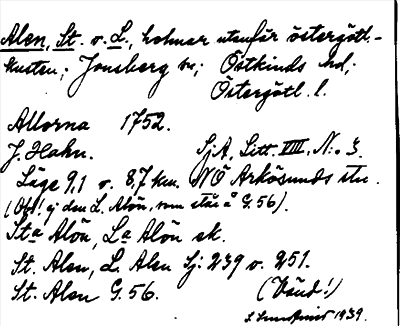 Alen, St. o. L., holmar utanför östergötl.-
kusten; Jonsberg sn; Östkinds hd;
Östergötl. l.
Allorna 1752.
J. Hahn. SjA, Litt. VIII, N:o 3.
Läge 9,1 o. 8,7 km. NÖ Arkösunds stn.
(Obs! ej den L. Alön, som står å G. 56).
St:a Alön, L:a Alön ek.
St. Alen, L. Alen Sj: 239 o. 251.
St. Alen G. 56. (Vänd!)
1939.